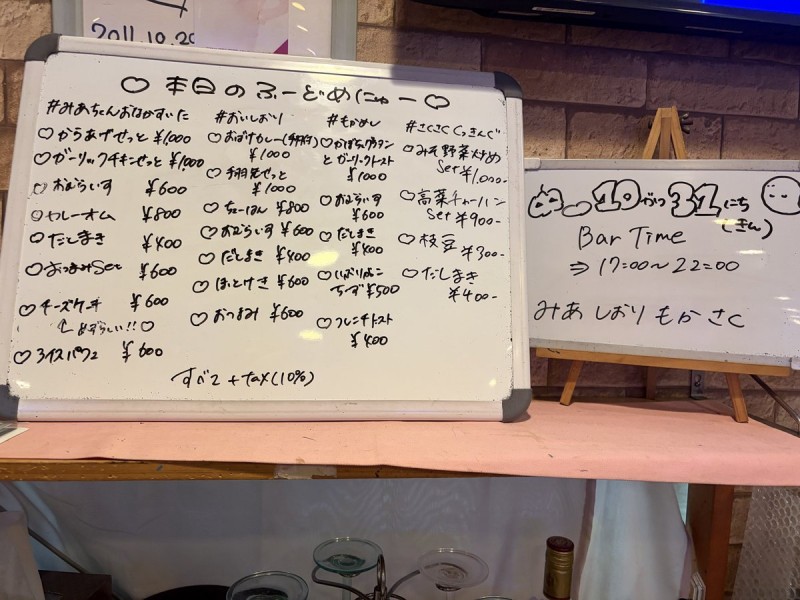 2011.10.29
♡ 本日のふーどめにゅー ♡
#みあちゃんおなかすいた
♡ からあげせっと ¥1,000
♡ ガーリックチキンせっと ¥1,000
♡ おむらいす ¥600
♡ カレーオム ¥800
♡ だしまき ¥400
♡ おつまみSet ¥600
♡ チーズケーキ ¥600
めずらしい!! ♡
♡ アイスパフェ ¥600
#おいしおり
♡ おばけカレー(手羽付)
¥1000
♡ 手羽先せっと
¥1000
♡ ちゃーはん ¥800
♡ おむらいす ¥600
♡ だしまき ¥400
♡ ほっとけーき ¥600
♡ おつまみ ¥600
#もかめし
♡ かぼちゃグラタン
と ガーリックトースト
¥1000
♡ おむらいす
¥600
♡ だしまき
¥400
ちーず ¥500
♡ フレンチトースト
¥400
#さくさくくっきんぐ
♡ みそ野菜炒め
Set ¥1,000-
♡ 高菜チャーハン
Set ¥900-
♡ 枝豆 ¥300-
♡ だしまき
¥400-
すべて + tax(10%)
10がつ31にち
(きん)
Bar Time
⇒ 17:00~22:00
みあ しおり もか さく